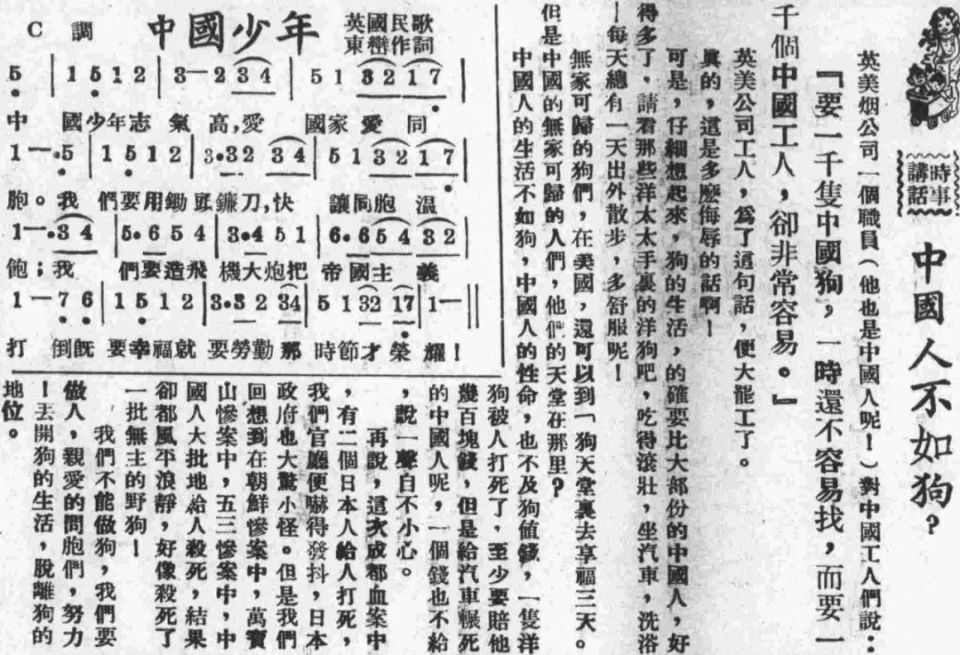 時事
講話
中國人不如狗?
英美烟公司一個職員(他也是中國人呢!)對中國工人們說:
『要一千隻中國狗,一時還不容易找,而要一
千個中國工人,卻非常容易。』
英美公司工人,爲了這句話,便大罷工了。
眞的,這是多麽侮辱的話啊!
可是,仔細想起來,狗的生活,的確要比大部份的中國人,好
得多了,請看那些洋太太手裏的洋狗吧,吃得滾壯,坐汽車,洗浴
!每天總有一天出外散步,多舒服呢!
無家可歸的狗們,在美國,還可以到「狗天堂裏去享福三天。
但是中國的無家可歸的人們,他們的天堂在那里?
中國人的生活不如狗,中國人的性命,也不及狗値錢,一隻洋
狗被人打死了,至少要賠他
幾百塊錢,但是給汽車輾死
的中國人呢,一個錢也不給
,說一聲自不小心。
再說,這次成都血案中
,有二個日本人給人打死,
我們官廳便嚇得發抖,日本
政府也大驚小怪。但是我們
回想到在朝鮮慘案中,萬寶
山慘案中,五三慘案中,中
國人大批地給人殺死,結果
卻都風平浪靜,好像殺死了
一批無主的野狗!
我們不能做狗,我們要
做人,親愛的同胞們,努力
!丟開狗的生活,脫離狗的
地位。
C 調 中國少年 英國民歌
東巒作詞
5 | 1 5 1 2 | 3—2 3 4 | 5 1 3 2 1 7 |
中 國少年志 氣 高,愛 國家 愛 同
1—·5 | 1 5 1 2 | 3·32 3 4 | 5 1 3 2 1 7 |
胞。我 們要用鋤頭鐮刀,快 讓同胞 溫
1—·3 4 | 5·6 5 4 | 3·4 5 1 | 6·6 5 4 3 2 |
飽;我 們要造飛 機大炮把 帝國主 義
1—7 6 | 1 5 1 2 | 3·3 2 34 | 5 1 32 17 | 1—||
打 倒旣 要幸福就 要勞勤那 時節才榮 耀!